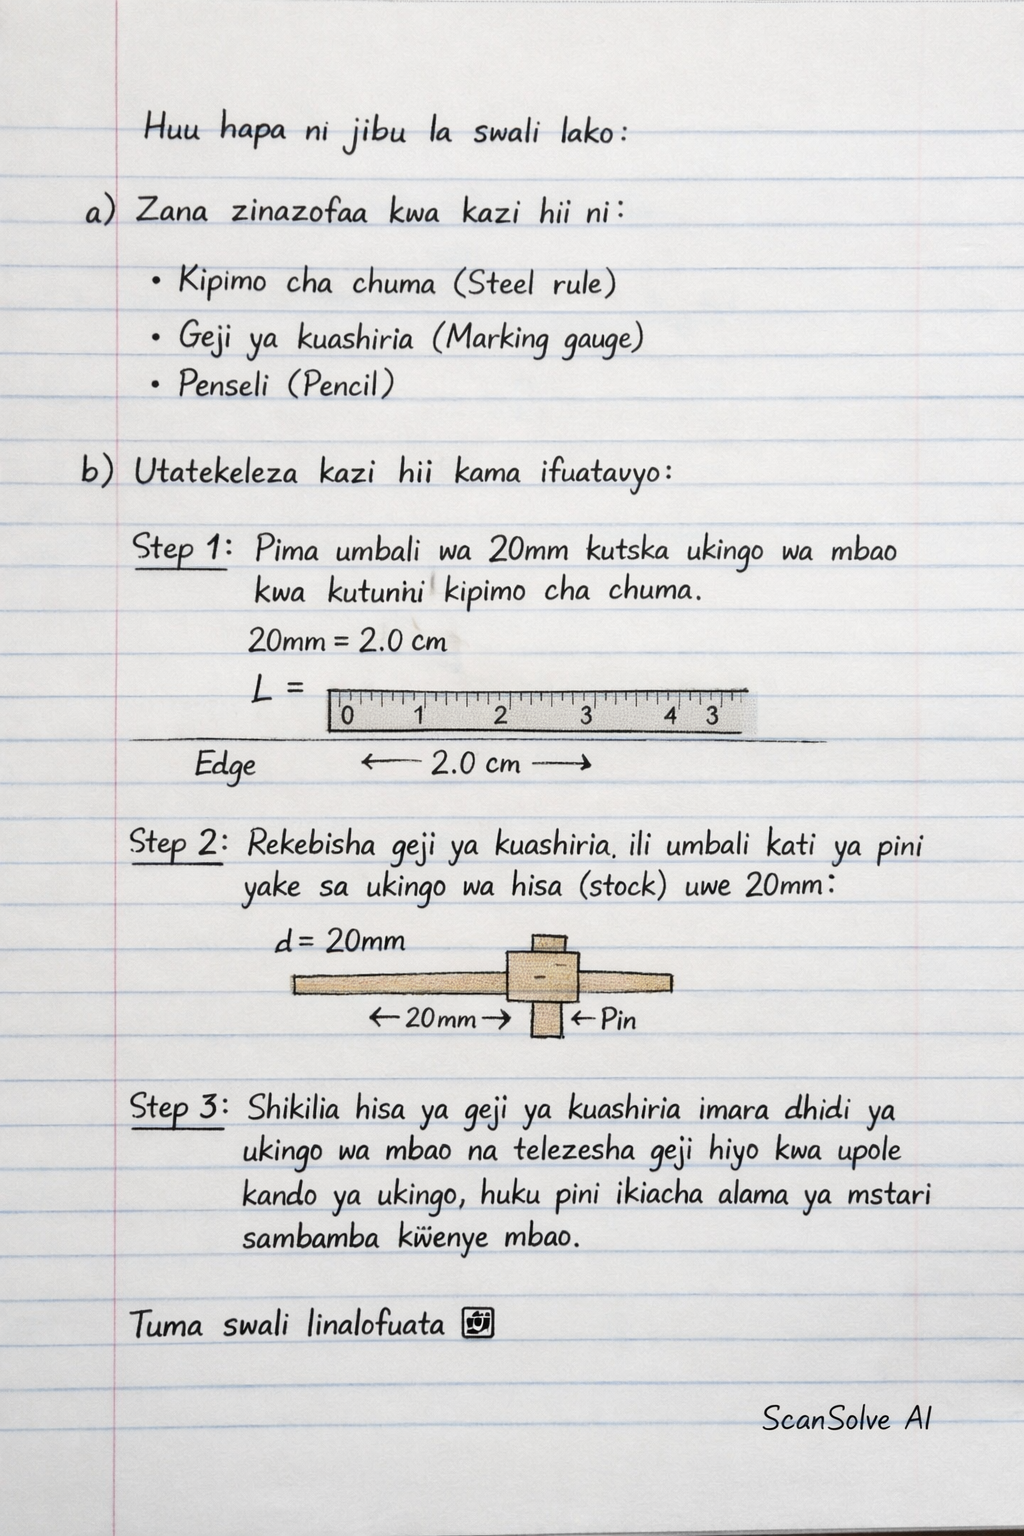 Huu hapa ni jibu la swali lako:
a) Zana zinazofaa kwa kazi hii ni:
• Kipimo cha chuma (Steel rule)
• Geji ya kuashiria (Marking gauge)
• Penseli (Pencil)
b) Utatekeleza kazi hii kama ifuatavyo:
Step 1: Pima umbali wa 20mm kutska ukingo wa mbao
kwa kutunini kipimo cha chuma.
20mm = 2.0 cm
L =
0 1 2 3 4 3
Edge ← 2.0 cm →
Step 2: Rekebisha geji ya kuashiria. ili umbali kati ya pini
yake sa ukingo wa hisa (stock) uwe 20mm:
d = 20mm
← 20mm → ← Pin
Step 3: Shikilia hisa ya geji ya kuashiria imara dhidi ya
ukingo wa mbao na telezesha geji hiyo kwa upole
kando ya ukingo, huku pini ikiacha alama ya mstari
sambamba kwenye mbao.
Tuma swali linalofuata
ScanSolve AI